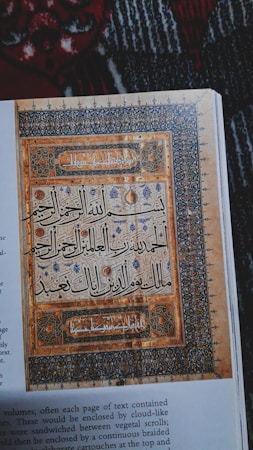 بسم الله الرحمن الرحيم
الحمد لله رب العالمين الرحمن الرحيم
مالك يوم الدين اياك نعبد
volumes; often each page of text contained
These would be enclosed by cloud-like
were sandwiched between vegetal scrolls;
then be enclosed by a continuous braided
cartouches at the top and